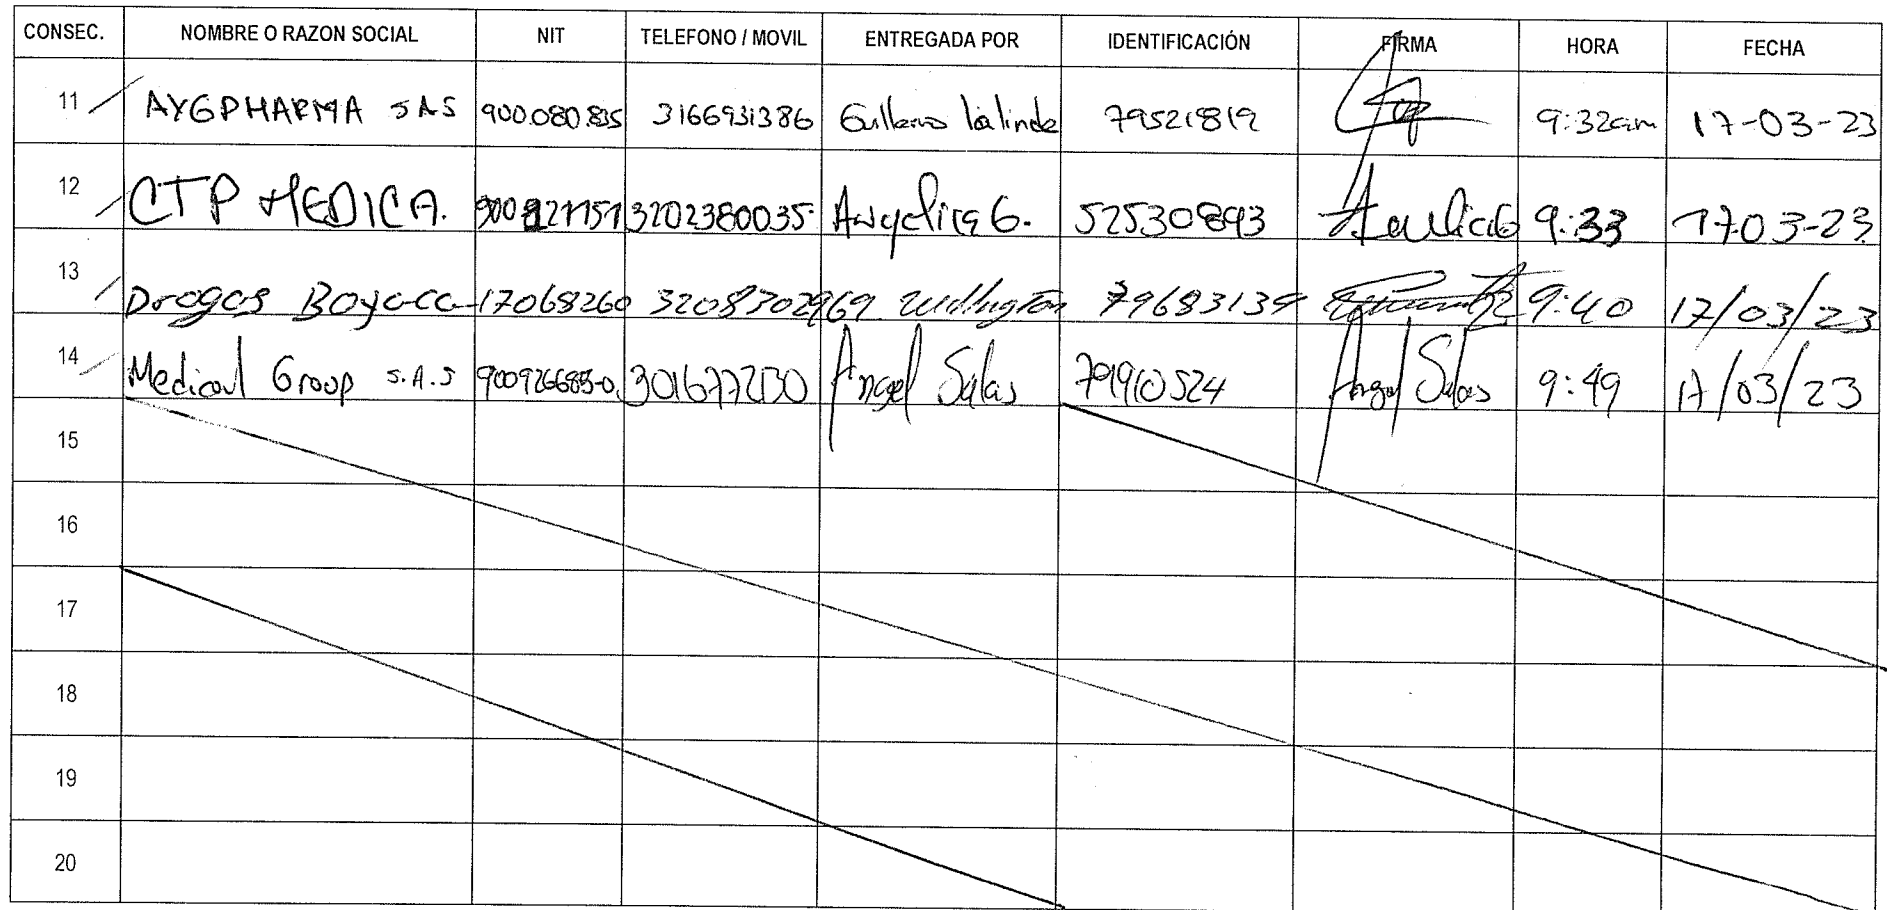 CONSEC. NOMBRE O RAZON SOCIAL NIT TELEFONO / MOVIL ENTREGADA POR IDENTIFICACIÓN FIRMA HORA FECHA
11 AYGPHARMA SAS 900.080.835 3166931386 Guillermo Lalinde 79521819 9:32am 17-03-23
12 CTP MEDICA. 3202380035 Angelica G. 52530893 9:33 17-03-23
13 Drogas Boyaca 17068260 3208302969 Willington 79683139 9:40 17/03/23
14 Medical Group S.A.S 900926685-0 3016772130 Angel Salas 79910524 Angel Salas 9:49 17/03/23
15
16
17
18
19
20